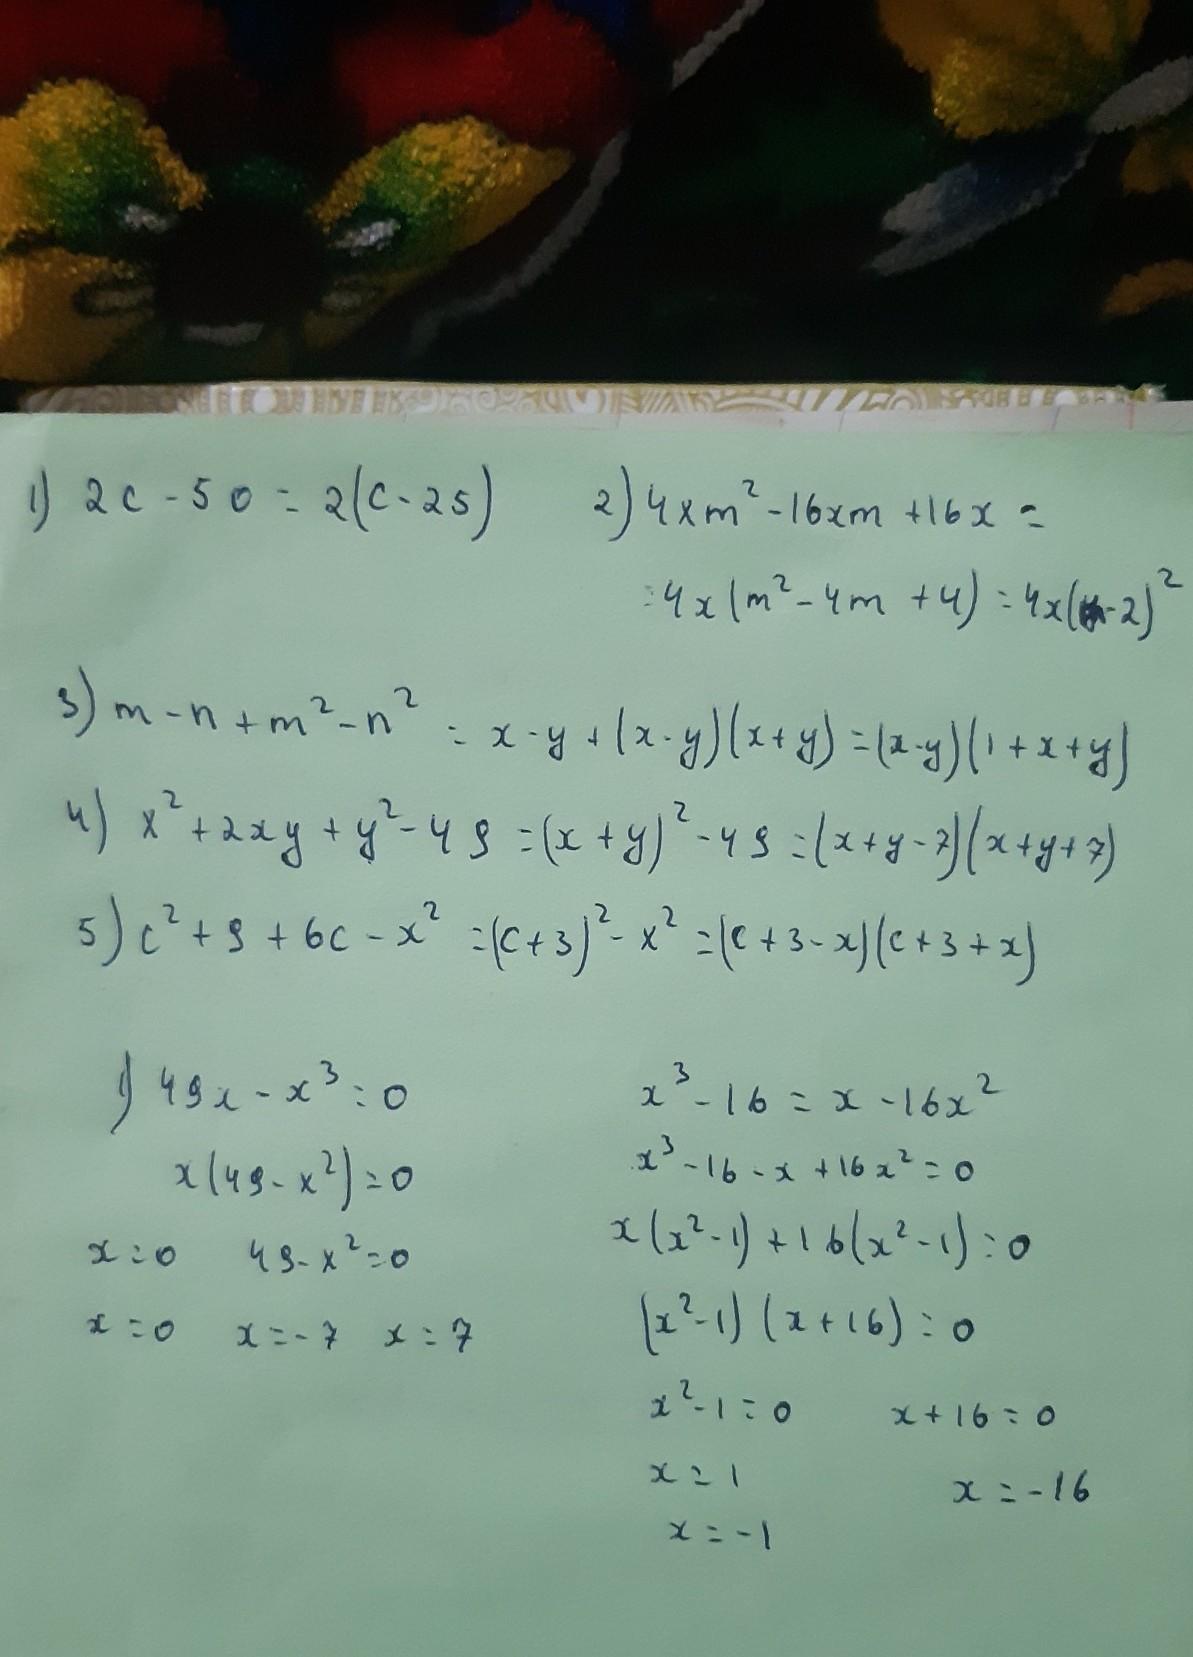 1) 2c - 50 = 2(c - 25)
2) 4xm² - 16xm + 16x =
= 4x(m² - 4m + 4) = 4x(m-2)²
3) m - n + m² - n² = x - y + (x - y)(x + y) = (x - y)(1 + x + y)
4) x² + 2xy + y² - 49 = (x + y)² - 49 = (x + y - 7)(x + y + 7)
5) c² + 9 + 6c - x² = (c + 3)² - x² = (c + 3 - x)(c + 3 + x)
1) 49x - x³ = 0
x(49 - x²) = 0
x = 0 49 - x² = 0
x = 0 x = -7 x = 7
x³ - 16 = x - 16x²
x³ - 16 - x + 16x² = 0
x(x² - 1) + 16(x² - 1) = 0
(x² - 1)(x + 16) = 0
x² - 1 = 0 x + 16 = 0
x = 1 x = -16
x = -1